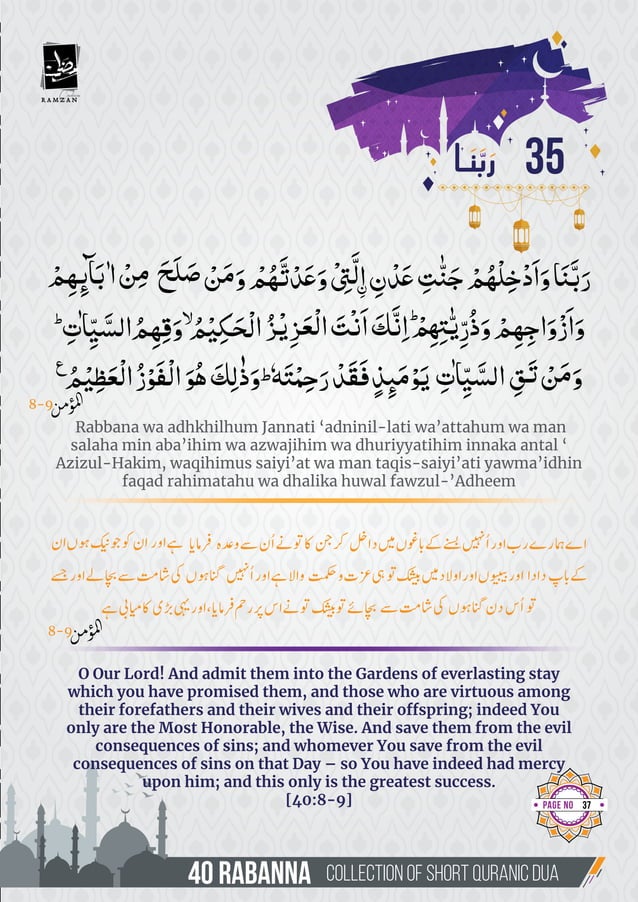 RAMZAN
رَبَّنَا 35
رَبَّنَا وَاَدْخِلْهُمْ جَنّٰتِ عَدْنِ ۨالَّتِیْ وَعَدْتَّهُمْ وَمَنْ صَلَحَ مِنْ اٰبَآىِٕهِمْ
وَاَزْوَاجِهِمْ وَذُرِّیّٰتِهِمْ ؕ اِنَّكَ اَنْتَ الْعَزِیْزُ الْحَكِیْمُ ۙ وَقِهِمُ السَّیِّاٰتِ ؕ
وَمَنْ تَقِ السَّیِّاٰتِ یَوْمَىِٕذٍ فَقَدْ رَحِمْتَهٗ ؕ وَذٰلِكَ هُوَ الْفَوْزُ الْعَظِیْمُ ع
المؤمن 8-9
Rabbana wa adhkhilhum Jannati ‘adninil-lati wa’attahum wa man
salaha min aba’ihim wa azwajihim wa dhuriyyatihim innaka antal ‘
Azizul-Hakim, waqihimus saiyi’at wa man taqis-saiyi’ati yawma’idhin
faqad rahimatahu wa dhalika huwal fawzul-’Adheem
اے ہمارے رب اور اُنہیں بسنے کے باغوں میں داخل کر جن کا تو نے اُن سے وعدہ فرمایا ہے اور ان کو جو نیک ہوں ان
کے باپ دادا اور بیبیوں اور اولاد میں بیشک تو ہی عزت و حکمت والا ہے اور اُنہیں گناہوں کی شامت سے بچالے اور جسے
تو اُس دن گناہوں کی شامت سے بچائے تو بیشک تو نے اس پر رحم فرمایا، اور یہی بڑی کامیابی ہے
المؤمن 8-9
O Our Lord! And admit them into the Gardens of everlasting stay
which you have promised them, and those who are virtuous among
their forefathers and their wives and their offspring; indeed You
only are the Most Honorable, the Wise. And save them from the evil
consequences of sins; and whomever You save from the evil
consequences of sins on that Day – so You have indeed had mercy
upon him; and this only is the greatest success.
[40:8-9]
PAGE NO 37
40 RABANNA COLLECTION OF SHORT QURANIC DUA